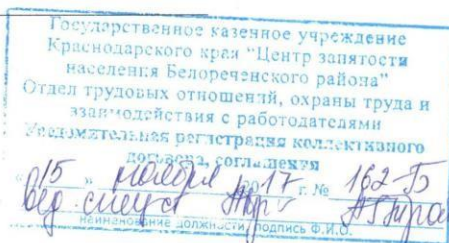 Государственное казенное учреждение
Краснодарского края "Центр занятости
населения Белореченского района"
Отдел трудовых отношений, охраны труда и
взаимодействия с работодателями
Уведомительная регистрация коллективного
договора, соглашения
"15" ноября 2017 г. № 162-Б
вед. специа
наименование должности, подпись Ф.И.О.